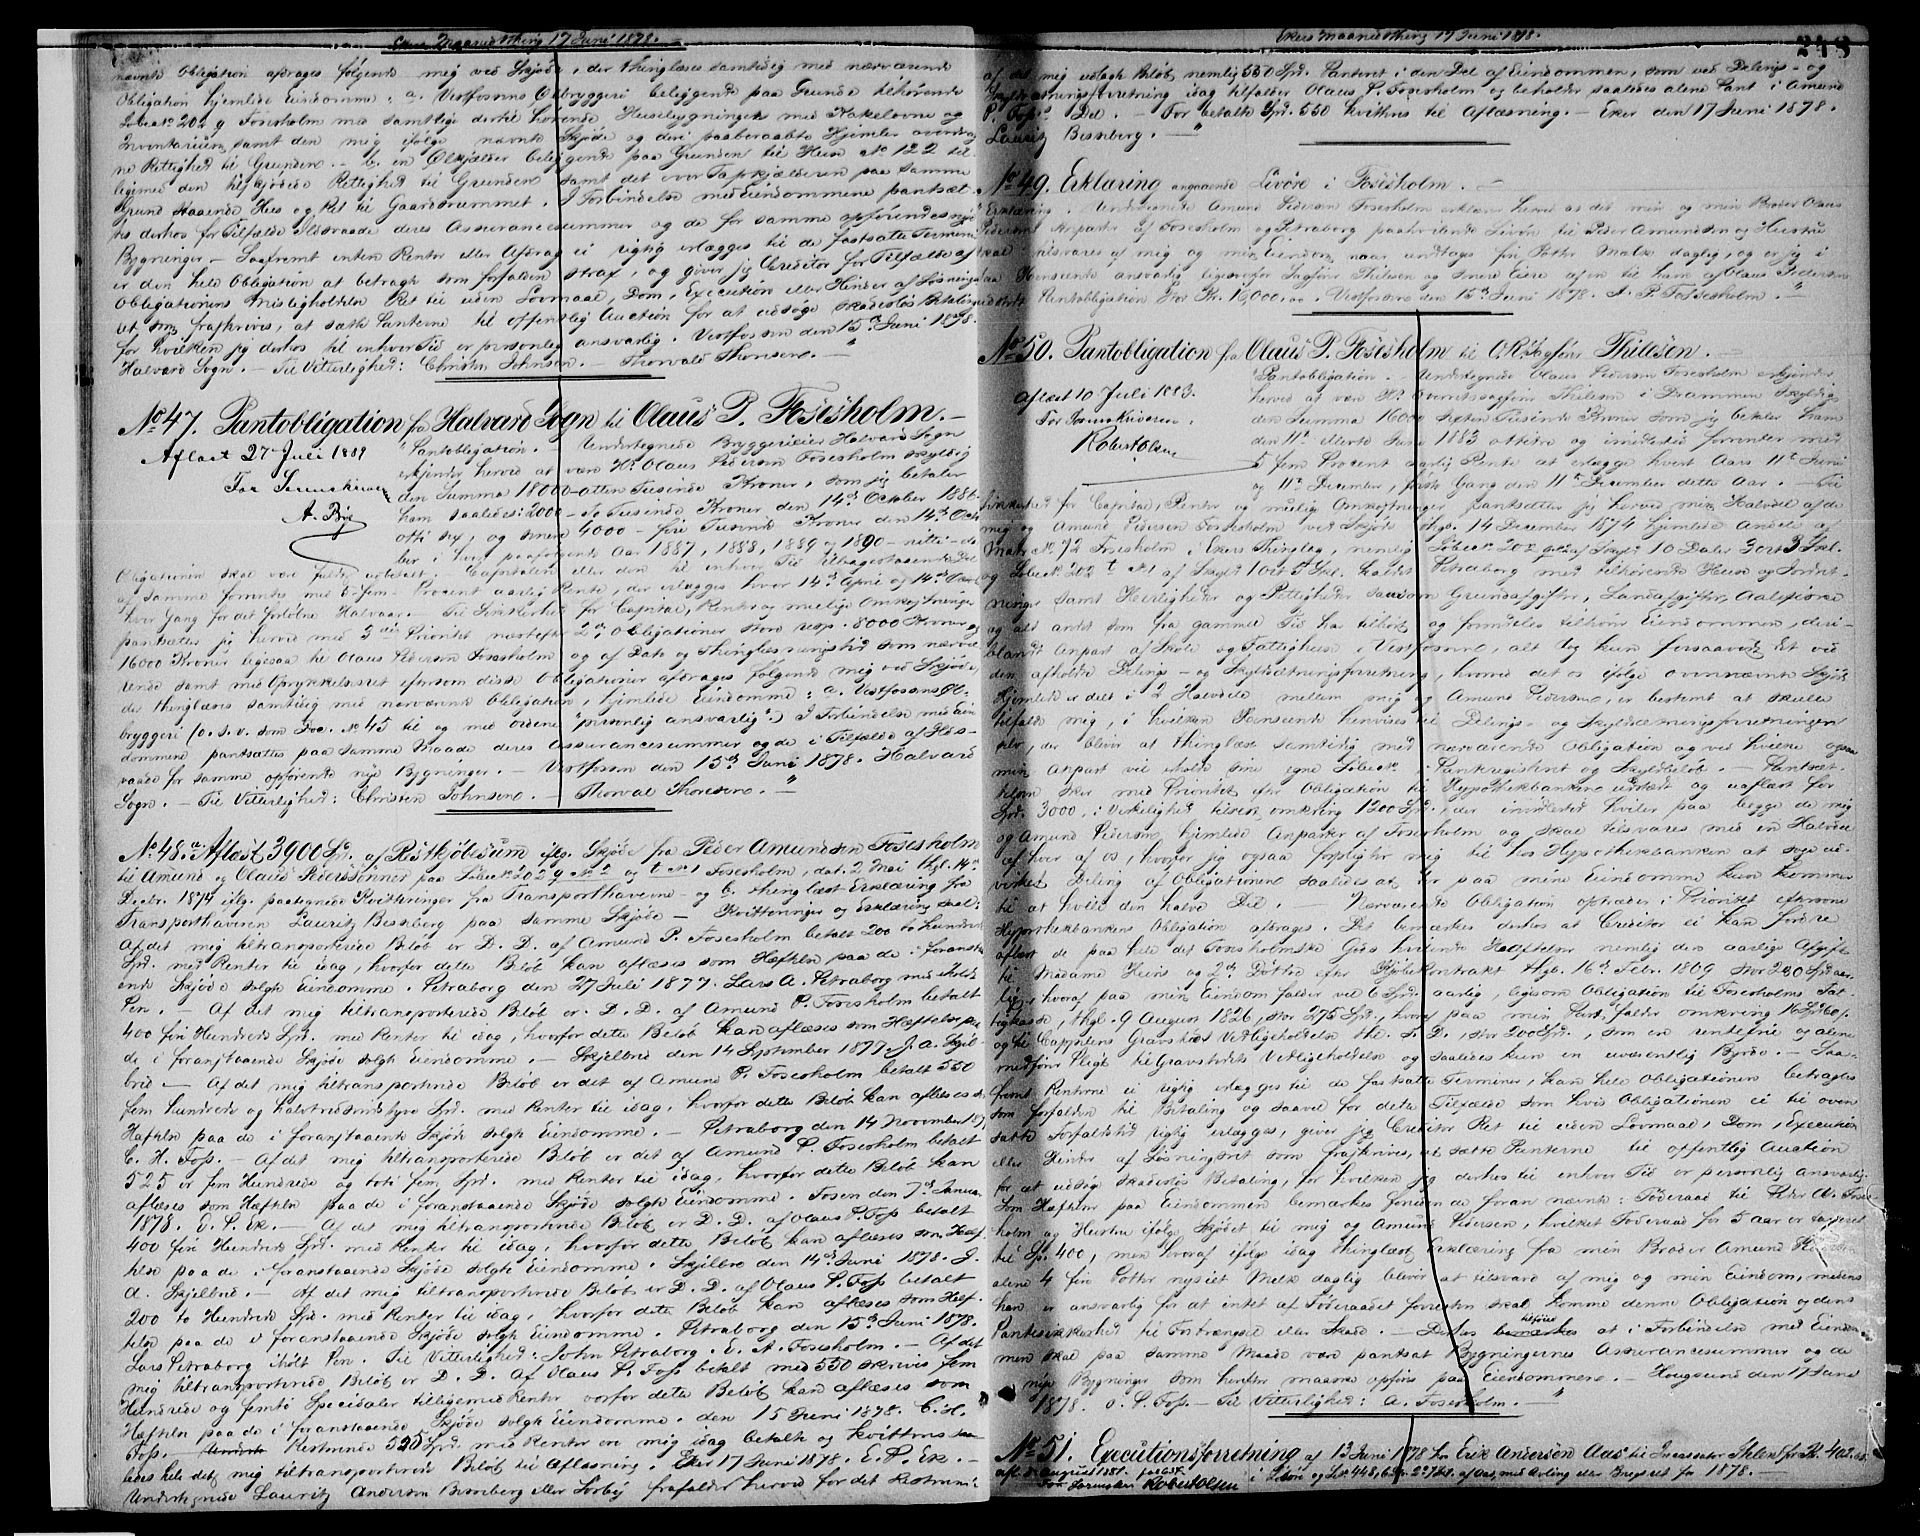 Ekers Maanedsthing 17 Juni 1878.
nævnte Obligation afdrages følgende mig ved Skjøde, der thinglæses samtidig med nærværende
Obligation hjemlede Eiendomme: a. Vestfossens Ølbryggeri beliggende paa Grund tilhørende
Løbe No 202 g Fosesholm med samtlige dertil hørende Huusebygninger med Kakelovne og
Inventarium samt den mig ifølge nævnte Skjøde og deri paaberaabte Hjemler overdrag-
ne Rettighed til Grunden. – b. en Ølkjælder beliggende paa Grunden til Huus No 122 til-
ligemed den tilskjødede Rettighed til Grunden samt det over Tapkjælderen paa samme
Grund staaende Huus og Ret til Gaardsrummet. I Forbindelse med Eiendommene pantsæt-
tes derhos for Tilfælde Ildsvaade deres Assurancesummer og de for samme opførendes nye
Bygninger. – Saafremt enten Renter eller Afdrag ei rigtig erlægges til de fastsatte Terminer
er den hele Obligation at betragte som forfalden strax, og giver jeg Creditor for Tilfælde af
Obligationens Misligholdelse Ret til uden Lovmaal, Dom, Execution eller Hinder af Løsnings-
ret som frafkrives, at sætte Panterne til offentlig Auction for at udsøge skadesløs Betaling
for hvilken jeg derhos til enhver Tid er personlig ansvarlig. Vestfossen den 15de Juni 1878.
Halvard Sogn. – Til Vitterlighed: Christen Johnsen. – Thorvald Thoresen. –
No 47. Pantobligation fra Halvard Sogn til Olaus P. Fosesholm. –
Aflæst 27 Juli 1889
For Sorenskriveren
A. Bøe
Pantobligation. – Undertegnede Bryggerieier Halvard Sogn
erkjender herved at være Hr Olaus Pedersen Fosesholm skyldig
den Summa 18000 – atten Tusinde Kroner, som jeg betaler
ham saaledes: 2000 – to Tusinde Kroner den 14de October 1886
otti sex, og senere 4000 – fire Tusinde Kroner den 14de Octo-
ber i hver paafølgende Aar 1887, 1888, 1889 og 1890 – nitti – da
Obligationen skal være fuldt udbetalt. – Capitalen eller den til enhver Tid tilbagestaaende Del
af samme forrentes med 5 – fem – Procent aarlig Rente, der erlægges hver 14de April og 14de October
hver Gang for det forløbne Halvaar. – Til Sikkerhed for Capital, Renter og muelige Omkostninger
pantsætter jeg herved med 3die Prioritet næstefter 2de Obligationer store resp. 8000 Kroner og
16000 Kroner ligesaa til Olaus Pedersen Fosesholm og af Dato og Thinglæsningstid som nærvæ-
rende samt med Oprykkelsesret eftersom disse Obligationer afdrages følgende mig ved Skjøde,
der thinglæses samtidig med nærværende Obligation, hjemlede Eiendomme: a. Vestfossens Øl-
bryggeri (o. s. v. som Doc. No 45 til og med ordene "personlig ansvarlig".) I Forbindelse med Eien-
dommene pantsættes paa samme Maade deres Assurancesummer og de i Tilfælde af Ilds-
vaade for samme opførende nye Bygninger. – Vestfossen den 15de Juni 1878. Halvard
Sogn. – Til Vitterlighed: Christen Johnsen. – Thorval Thoresen. –
No 48. a. Aflæst 3900 Spd. af Restkjøbesum iflg. Skjøde fra Peder Amundsen Fosesholm
til Amund og Olaus Pederssønner paa Løbe No 202 g No 2 og t No 1 Fosesholm, dat. 2 Mai thgl. 14de
Decbr. 1874 iflg. paategnede Kvitteringer fra Transporthaverne – og b. thinglæst Erklæring fra
Transporthaveren Lauritz Bissberg paa samme Skjøde. – Kvitteringer og Erklæring saal:
Af det mig tiltransporterede Beløb er D. D. af Amund P. Fosesholm betalt 200 to Hundrede
Spd. med Renter til idag, hvorfor dette Beløb kan aflæses som Hæftelse paa de i foranstaa-
ende Skjøde solgte Eiendomme. Petraborg den 27 Juli 1877. Lars A. Petraborg med iholdt
Pen. – Af det mig tiltransporterede Beløb er D. D. af Amund P. Fosesholm betalt
400 fire Hundrede Spd. med Renter til idag, hvorfor dette Beløb kan aflæses som Hæftelse paa
de i foranstaaende Skjøde solgte Eiendomme. – Skjelbred den 14 September 1877. J. A. Skjel-
bred – Af det mig tiltransporterede Beløb er det af Amund P. Fosesholm betalt 550
fem Hundrede og halvtredsindstyve Spd. med Renter til idag, hvorfor dette Beløb kan aflæses som
Hæftelse paa de i foranstaaende Skjøde solgte Eiendomme. – Petraborg den 14 November 187
C. H. Foss. – Af det mig tiltransporterede Beløb er det af Amund P. Fosesholm betalt
525 er fem Hundrede og toti fem Spd. med Renter til idag, hvorfor dette Beløb kan
aflæses som Hæftelse paa de i foranstaaende Skjøde solgte Eiendomme. Fosen den 7de Januar
1878. E. P. Ek. – Af det mig tiltransporterede Beløb er D. D. af Olaus P. Foss betalt
400 fire Hundrede Spd. med Renter til idag, hvorfor dette Beløb kan aflæses som Hæf-
telse paa de i foranstaaende Skjøde solgte Eiendomme. Skjelbred den 14de Juni 1878. J.
A. Skjelbred. – Af det mig tiltransporterede Beløb er D. D. af Olaus P. Foss betalt
200 to Hundrede Spd. med Renter til idag, hvorfor dette Beløb kan aflæses som Hæf-
telse paa de i foranstaaende Skjøde solgte Eiendomme. Petraborg den 15de Juni 1878.
Lars Petraborg iholdt Pen. Til Vitterlighed: John Petraborg. E. A. Fosesholm. – Af det
mig tiltransporterede Beløb er D. D. Af Olaus P. Foss betalt med 550 skrives fem
Hundrede og femti Speciedaler tilligemed Renter vorfor dette Beløb kan aflæses som
Hæftelse paa de i foranstaaende Skjøde solgte Eiendomme. den 15 Juni 1878. C. H.
Foss. – Restrende 525 Spd. med Renter er mig idag betalte og kvitteres saa-
ledes hele det mig tiltransporterede Beløb til Aflæsning. Eker 17 Juni 1878. E. P. Ek. –
Undertegnede Lauritz Andersen Bissberg eller Sørby frafalder herved for det resterende
Ekers Maanedsthing 17 Juni 1878.
248
af det mig udlagte Beløb nemlig 550 Spd. Panteret i den Del af Eiendommen, som ved Delings- og
Skyldsætningsforretning idag tilfalder Olaus P. Fosesholm og beholder saaledes alene Pant i Amund
P. Foss's Del. – For betalte Spd. 550 kvitteres til Aflæsning. – Eker den 17 Juni 1878.
Lauritz Bissberg. –
No 49. Erklæring angaaende Livøre i Fosesholm. –
Erklæring. Undertegnede Amund Pedersen Fosesholm erklærer herved at det min og min Broder Olaus
Pedersens Anparter af Fosesholm og Petraborg paahvilende Livøre til Peder Amundsen og Hustru
skal tilsvares af mig og min Eiendom, naar undtages fire Potter Melk daglig, og er jeg i
saa Henseende ansvarlig ligeoverfor Sagfører Thilesen og senere Eiere af en til ham af Olaus Pedersen
udstedt Pantobligation stor Kr. 16,000,00. Vestfossen den 15de Juni 1878. A. P. Fosesholm. –
No 50. Pantobligation fra Olaus P. Fosesholm til O.R.Sagfører Thilesen. –
aflæst 10 Juli 1883.
For Sorenskriveren.
Robert Olsen
Pantobligation. – Undertegnede Olaus Pedersen Fosesholm erkjender
herved at være Hr. Overretssagfører Thilesen i Drammen skyldig
den Summa 16000 sexten Tusinde Kroner som jeg betaler ham
den 11te ellevte Juni 1883 ottitre og imidlertid forrenter med
5 fem Procent aarlig Rente at erlægge hvert Aars 11te Juni
og 11te December, første Gang den 11te December dette Aar. – Til
Sikkerhed for Capital, Renter og muelig Omkostninger pantsætter jeg herved min Halvdel af de
mig og Amund Pedersen Fosesholm ved Skjøde thgl. 14 December 1874 hjemlede Andele af
Matr. No 72 Fosesholm i Ekers Thinglag, nemlig Løbe No. 202 g No 2 af Skyld 10 Daler 3 ort 3 Skl.
og Løbe No. 202 t No 1 af Skyld 1 Ort 5 Skl. kaldet Petraborg med tilhørende Huse og Jordet-
ninger samt Herligheder og Rettigheder saasom Grundafgifter, Landafgifter, Aalefiske
og alt andet som fra gammel Tid har tilhørt og fremdeles tilhører Eiendommen, deri-
blandt Anpart af Skole og Fattighuse i Vestfossen, alt dog kun forsaavidt Et ved
den afholdte Delings- og Skyldsætningsforretning, hvorved det os ifølge ovennævnte Skjøde
Hjemlede er delt i 2 Halvdele mellem mig og Amund Pedersen, er bestemt at skulle
tilfalde mig, i hvilken Henseende henvises til Delings- og Skylddelingsforretningen
selv, der bliver at thinglæse samtidig med nærværende Obligation og ved hvilken ogsaa
min Anpart vil erholde sine egne Løbe No. i Panteregisteret og Skyldbeløb. – Pantsæt-
telsen sker med Prioritet efter Obligation til Hypothekbanken udstedt og uaflæst for
Spd. 3000, i Virkelighed tilsen omkring 1300 Spd., der imidlertid hviler paa begge de mig
og Amund Pedersen hjemlede Anparter af Fosesholm og skal tilsvares med en Halvdel
af hver af os, hvorfor jeg ogsaa forpligter mig til hos Hypothekbanken at søge ud-
virket Deling af Obligationen saaledes at der paa mine Eiendomme kun kommer
til at hvile den halve Del. – Nærværende Obligation optræder i Prioritet eftersom
Hypothekbankens Obligation afdrages. Det bemærkes derhos at Creditor ei kan fordre
aflæst de paa hele det Fosesholmske Gods hvilende Hæftelser nemlig den aarlige Afgift
til Madame Heins og 2de Døttre efter Kjøbekontrakt thgl. 16de Febr. 1809 stor 230 Spd. aar-
lig, hvoraf paa min Eiendom falder ved 6 Spd. aarlig, ligesom Obligation til Fosesholms Fat-
tigkasse, thgl. 9 August 1826, stor 275 Spd., hvoraf paa min Part falder omkring
og til Cappelens Gravsteds Vedligeholdelse thl. s. D., stor 200 Spd., som er rentefrie og alene
medfører Pligt til Gravstedets Vedligeholdelse og saaledes kun en uvæsentlig Byrde. – Saa-
fremt Renterne ei rigtig erlægges til de fastsatte Terminer, kan hele Obligationen betragtes
som forfalden til Betaling og saavel for dette Tilfælde som hvis Obligationen ei til oven
satte Forfaldstid rigtig erlægges, giver jeg Creditor Ret til uden Lovmaal, Dom, Execution
eller Hinder af Løsningsret som frafkrives, at sætte Panterne til offentlig Auction
for at udsøge skadesløs Betaling, for hvilken jeg derhos til enhver Tid er personlig ansvarlig.
Som Hæftelser paa Eiendommen bemærkes foruden de foran nævnte: Føderaad til Peder A. Foses-
holm og Hustru ifølge Skjødet til mig og Amund Pedersen, hvilket Føderaad for 5 aar er taxeret
til Spd. 400, men hvoraf ifølge idag thinglæst Erklæring fra min Broder Amund Pedersen
alene 4 fire Potter nysiet Melk daglig bliver at tilsvare af mig og min Eiendom, medens
han er ansvarlig for at intet af Føderaadet forresten skal komme denne Obligation og dens
Pantesikkerhed til Fortrængsel eller Skade. – Derhos bemærkes tilføies at i Forbindelse med Eiendom-
men skal paa samme Maade være pantsat Bygningernes Assurancesummer og de
nye Bygninger som herefter maatte opføres paa Eiendommene. – Hougsund den 17 Juni
1878. O. P. Foss. – Til Vitterlighed: A. Fosesholm. –
No 51. Executionsforretning af 13 Juni 1878 hos Erik Andersen Aas til Inkassator Ihlen for Kr. 402.
afl. August 1881. for Sorenskr. Robert Olsen i Løsøre og Løbe No 448, 6 af Aas, med Avling eller Brugsret for 1878. –